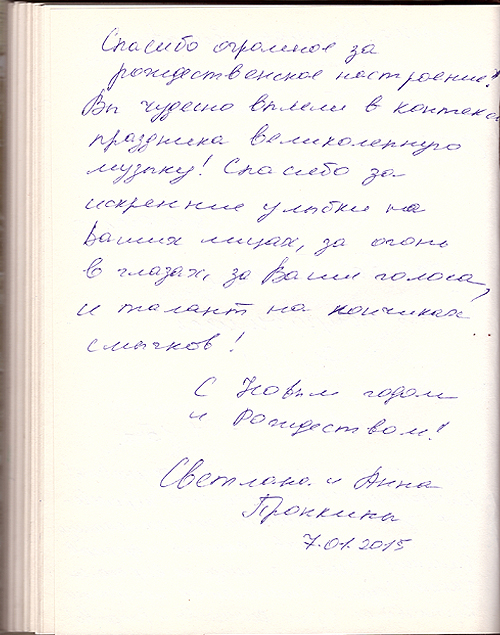 Спасибо огромное за
рождественское настроение!
Вы чудесно вплели в контекст
праздника великолепную
музыку! Спасибо за
искренние улыбки на
Ваших лицах, за огонь
в глазах, за Ваши голоса,
и талант на кончиках
смычков!
С Новым годом
и Рождеством!
Светлана и Анна
Пронкины
7.01.2015